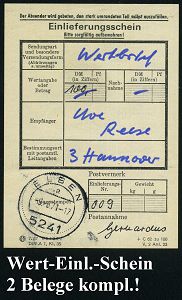 Der Absender wird gebeten, den stark umrandeten Teil selbst auszufüllen.
Einlieferungsschein
Bitte sorgfältig aufbewahren!
Sendungsart und besondere Versendungsform
Wertbrief
Wertangabe oder Betrag
DM (in Ziffern) Pf
100
Nachnahme
DM (in Ziffern) Pf
Empfänger
Uwe
Reese
Bestimmungsort mit postamtl. Leitangaben
3 Hannover
Postvermerk
Einlieferungs-Nr.
Gewicht
kg g
009
Postannahme
Gerhardus
ELBEN
5241
DIN A 7, Kl. 35
Wert-Einl.-Schein
2 Belege kompl.!